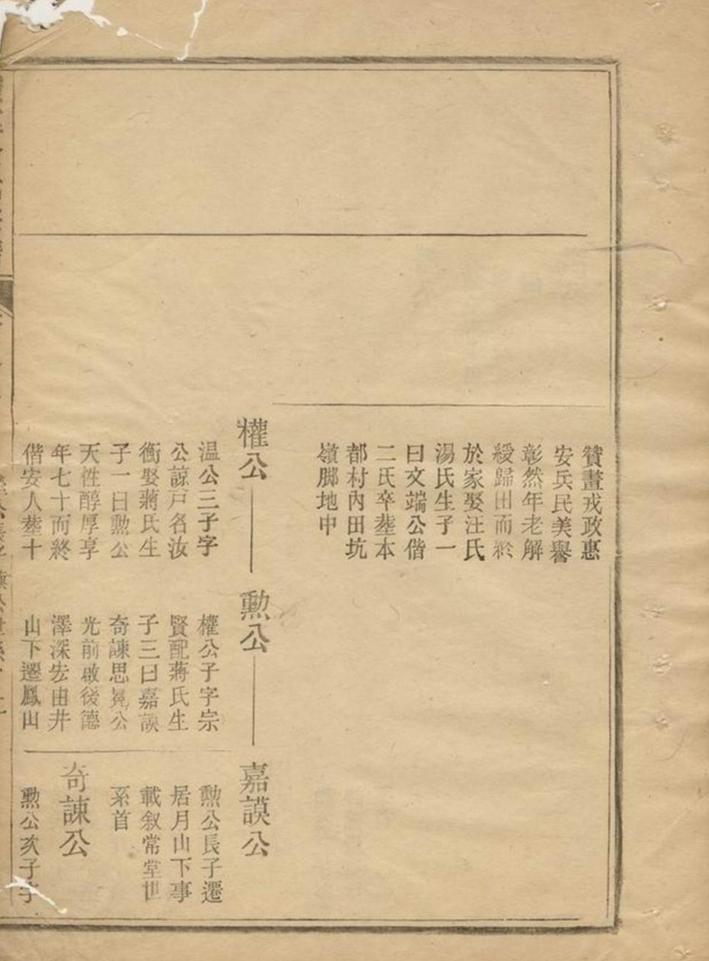 贊畫戎政惠
安兵民美譽
彰然年老解
綬歸田而終
於家娶汪氏
湯氏生子一
曰文端公偕
二氏卒塟本
都村內田坑
嶺脚地中
權公
温公三子字
公諒戸名汝
衡娶蔣氏生
子一曰勲公
天性醇厚享
年七十而終
偕安人塟十
勲公
權公子字宗
賢配蔣氏生
子三曰嘉謨
奇諫思冕公
光前啟後德
澤深宏由井
山下遷鳳山
嘉謨公
勲公長子遷
居月山下事
載叙常堂世
系首
奇諫公
勲公次子字